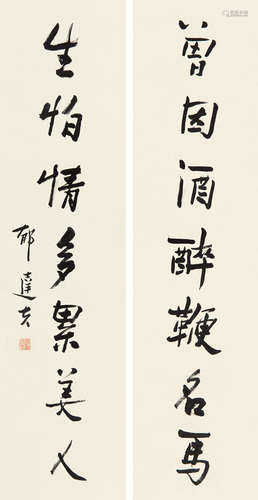 曾因酒醉鞭名馬
生怕情多累美人
郁達夫